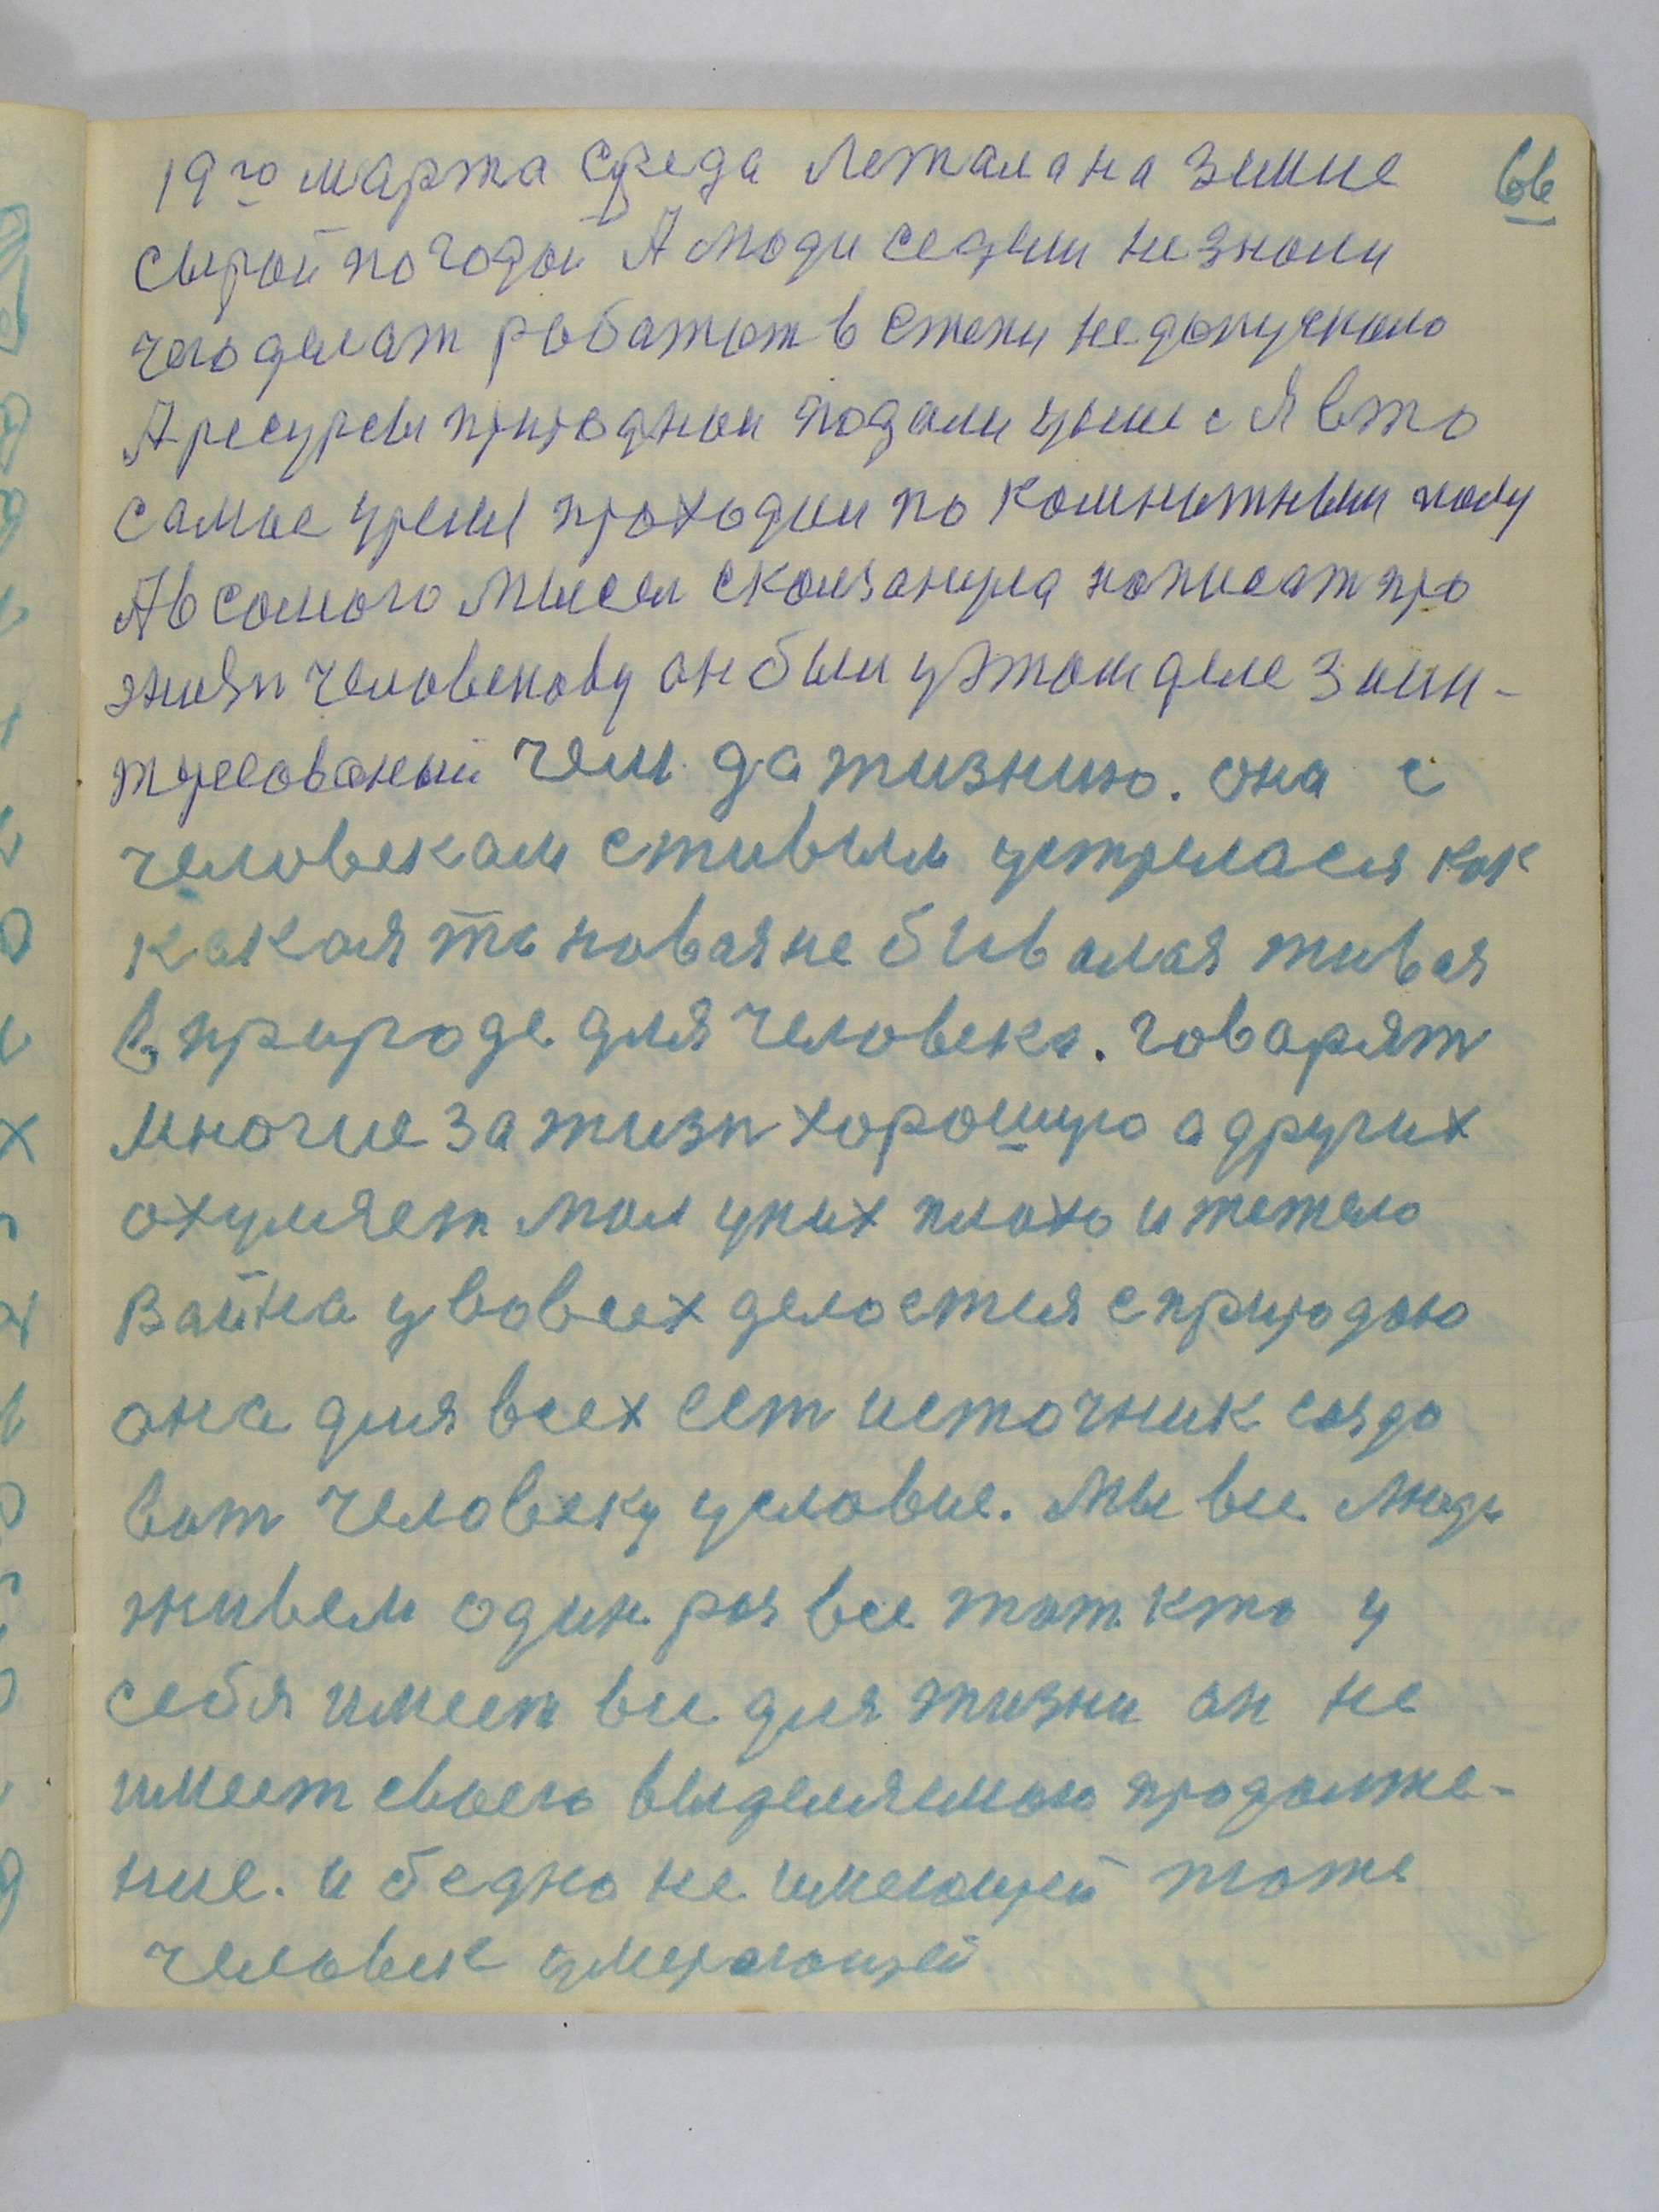 19го марта среда Лежала на зимие 66
сырой погодой А люди седели не знали
чего делат работат в степи не допускало
А ресурсы природнои подали цыне с Я в то
самое уремя проходил по комнатным полу
А в самого мысел скользанула написат про
жизн человекову он был у этом деле заин-
тресованый чем да жизнию. она с
человекам с живым устрелася как
какая то новая не бывалая живая
в природе для человека. говарят
многие за жизн хорошую а других
охуляет мол у них плохо и тежело
Вайна у во всех делается с природою
она для всех ест источник созда
ват человеку условие. Мы все люди
живем один раз все тот кто у
себя имеет все для жизни он не
имеет своего выделяемою продолже-
ние. и бедно не имеющей тоже
человек умерающей